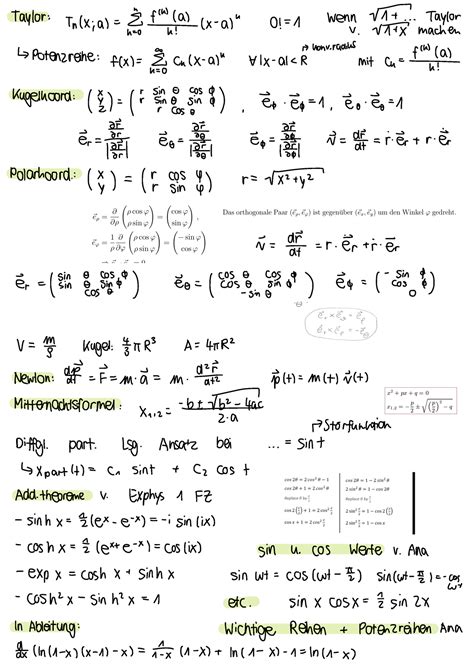 Taylor: Tₙ(x;a) = Σ_{k=0}^{n} f^{(k)}(a)/k! (x-a)^k   0! = 1   Wenn √(1+... v. √(1+x) Taylor machen
↳ Potenzreihe: f(x) = Σ_{k=0}^{∞} Cₖ(x-a)^k   ∀ |x-a| < R ↗konv.radius   mit Cₖ = f^{(k)}(a)/k!
Kugelkoord: (x y z) = (r sin θ cos φ, r sin θ sin φ, r cos θ), e⃗φ · e⃗φ = 1, e⃗θ · e⃗θ = 1
e⃗r = ∂r⃗/∂r / |∂r⃗/∂r|   e⃗θ = ∂r⃗/∂θ / |∂r⃗/∂θ|   e⃗φ = ∂r⃗/∂φ / |∂r⃗/∂φ|   v⃗ = dr⃗/dt = ṙ · e⃗r + r · e⃗r
Polarkoord: (x y) = (r cos φ, r sin φ)   r = √(x²+y²)
e⃗ρ = ∂/∂ρ (ρ cos φ, ρ sin φ) = (cos φ, sin φ),
Das orthogonale Paar (e⃗ρ, e⃗φ) ist gegenüber (e⃗x, e⃗y) um den Winkel φ gedreht.
e⃗φ = 1/ρ ∂/∂φ (ρ cos φ, ρ sin φ) = (-sin φ, cos φ)
v⃗ = dr⃗/dt = r · e⃗r + ṙ · e⃗r
e⃗r = (sin θ cos φ, sin θ sin φ, cos θ)   e⃗θ = (cos θ cos φ, cos θ sin φ, -sin θ)   e⃗φ = (-sin φ, cos φ, 0)
V = m/ρ   Kugel: 4/3 π R³   A = 4πR²
Newton: dp⃗/dt = F⃗ = m · a⃗ = m · d²r⃗/dt²   p⃗(t) = m(t) v⃗(t)
Mitternachtsformel: x₁,₂ = (-b ± √(b² - 4ac))/(2·a)
x² + px + q = 0
x₁,₂ = -p/2 ± √((p/2)² - q)
↗Störfunktion
Diffgl. part. Lsg. Ansatz bei ... = sin t
↳ x_part(t) = C₁ sin t + C₂ cos t
Add.theoreme v. Exphys 1 FZ
cos 2θ = 2 cos² θ - 1
cos 2θ + 1 = 2 cos² θ
cos x + 1 = 2 cos² x/2
cos 2θ = 1 - 2 sin² θ
2 sin² θ = 1 - cos 2θ
2 sin² x/2 = 1 - cos x
- sinh x = ½ (eˣ - e⁻ˣ) = -i sin(ix)
- cosh x = ½ (eˣ + e⁻ˣ) = cos(ix)
- exp x = cosh x + sinh x
- cosh² x - sinh² x = 1
sin u. cos Werte v. Ana
sin ωt = cos(ωt - π/2)   sin(ωt - π/2) = -cos ωt
etc.   sin x cos x = ½ sin 2x
ln Ableitung:   Wichtige Reihen + Potenzreihen Ana
d/dx (ln(1-x)(x-1) - x) = 1/(1-x) (1-x) + ln(1-x) - 1 = ln(1-x)